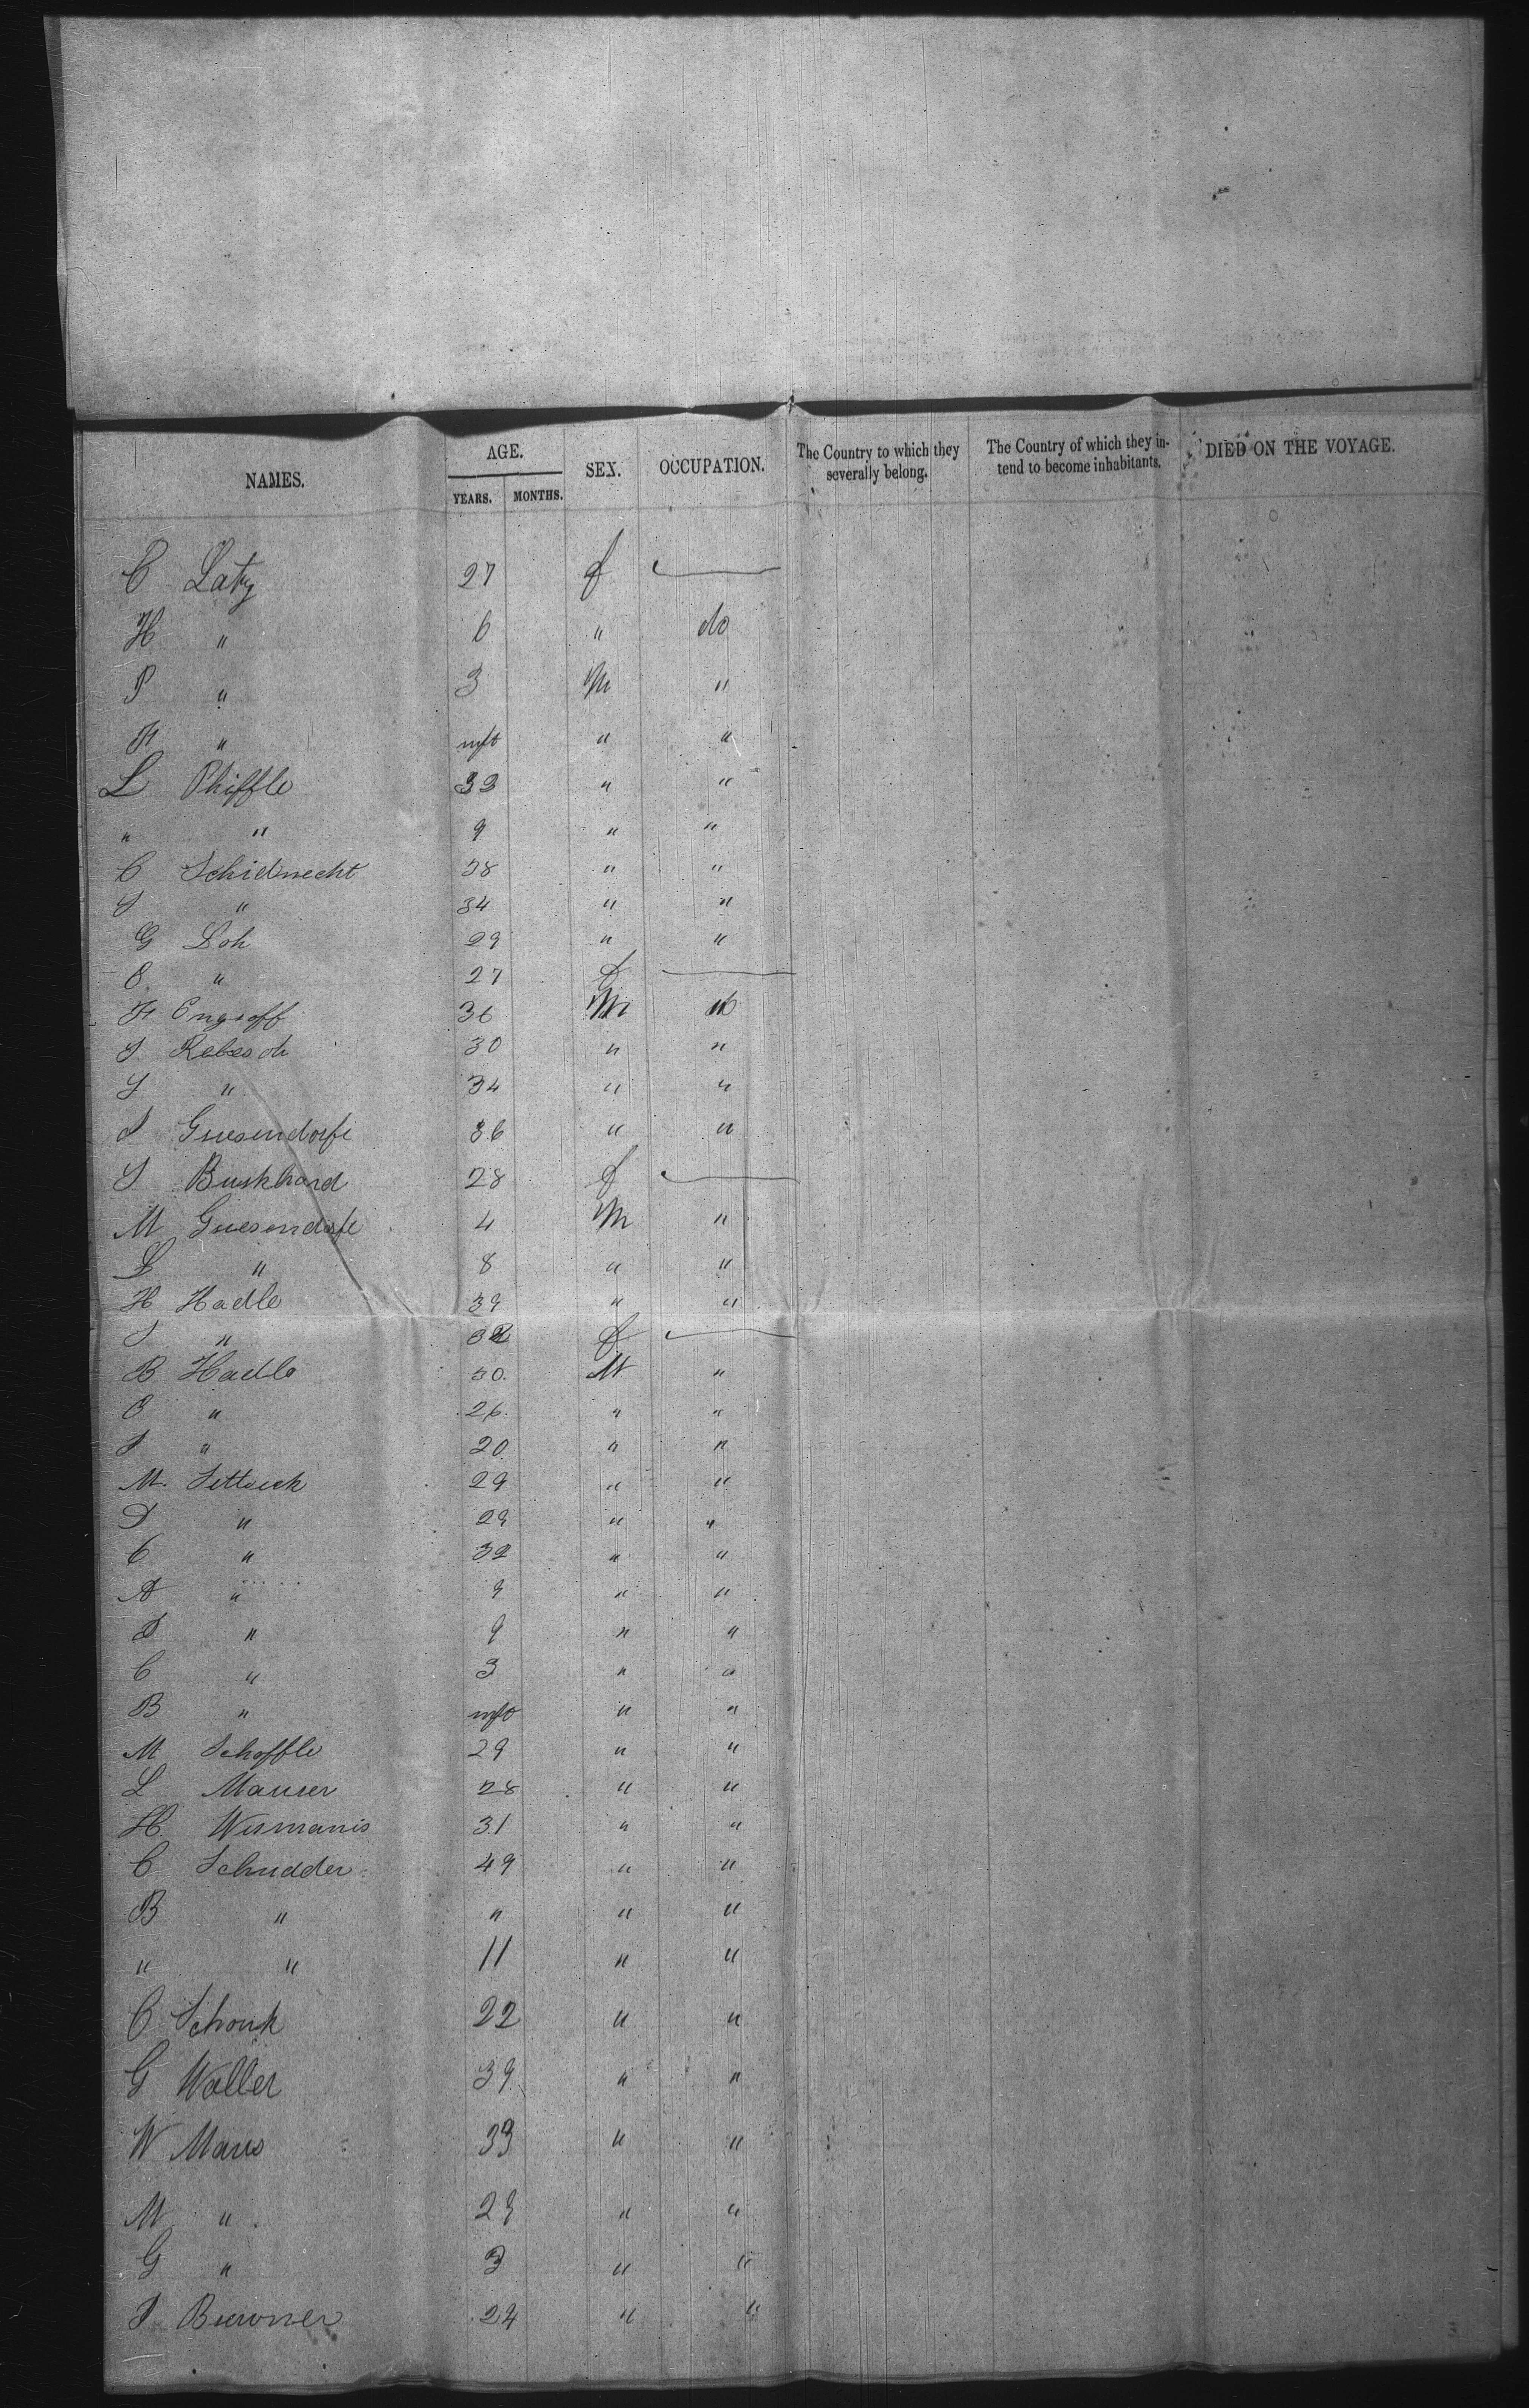 NAMES. AGE. YEARS. MONTHS. SEX. OCCUPATION. The Country to which they severally belong. The Country of which they intend to become inhabitants. DIED ON THE VOYAGE.
C Laty 27 f
H " 6 " do
P " 3 M "
F " inft " "
L Phiffle 32 " "
" " 9 " "
C Schidnecht 28 " "
S " 34 " "
G Loh 29 " "
C " 27 f
F Engsoff 36 M do
S Rebesch 30 " "
S " 34 " "
S Guesendorfe 36 " "
S Buskhard 28 f
M Guesendorfe 4 M "
L " 8 " "
H Hadle 39 " "
S " 32 f
B Hadle 30 M "
C " 26 " "
S " 20 " "
M. Settseck 29 " "
D " 29 " "
C " 32 " "
A " 9 " "
D " 9 " "
C " 3 " "
B " inft " "
M Schoffle 29 " "
L Mauser 28 " "
H Wismanis 31 " "
C Schudder 49 " "
B " " " "
" " 11 " "
C Schonk 22 " "
G Waller 39 " "
W Maus 33 " "
M " 29 " "
G " 3 " "
S Buroner 24 " "